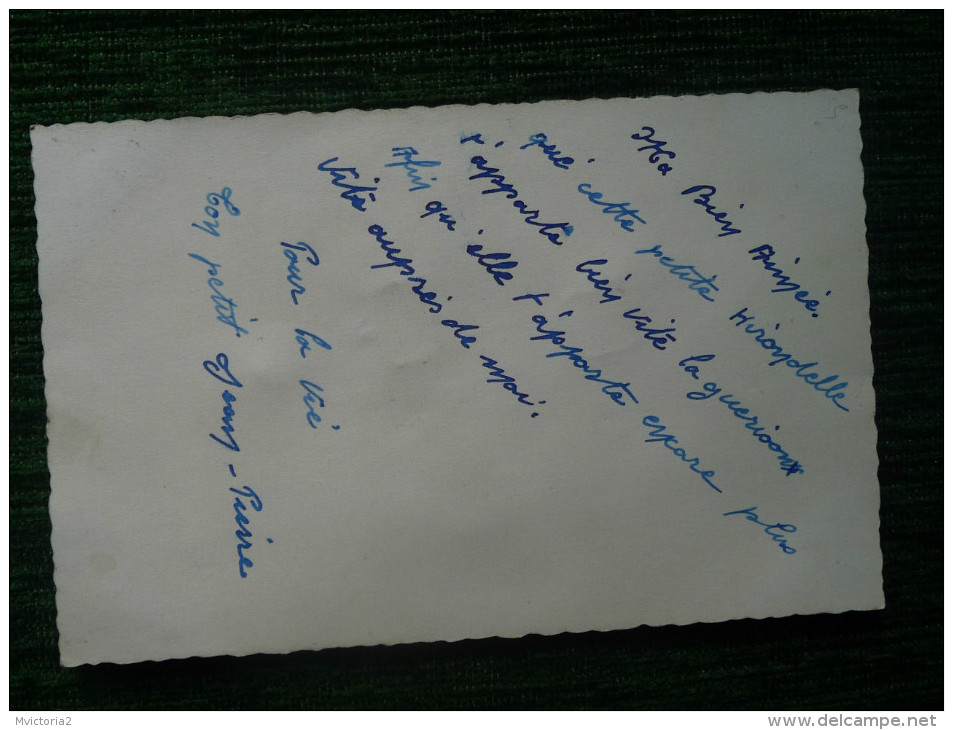 Ma Bien Aimée.
que cette petite Hirondelle
t'apporte bien vite la guerison
Afin qu'elle t'apporte encore plus
vite auprès de moi.
Pour la vie
Ton petit Jean-Pierre
Mvictoria2
www.delcampe.net